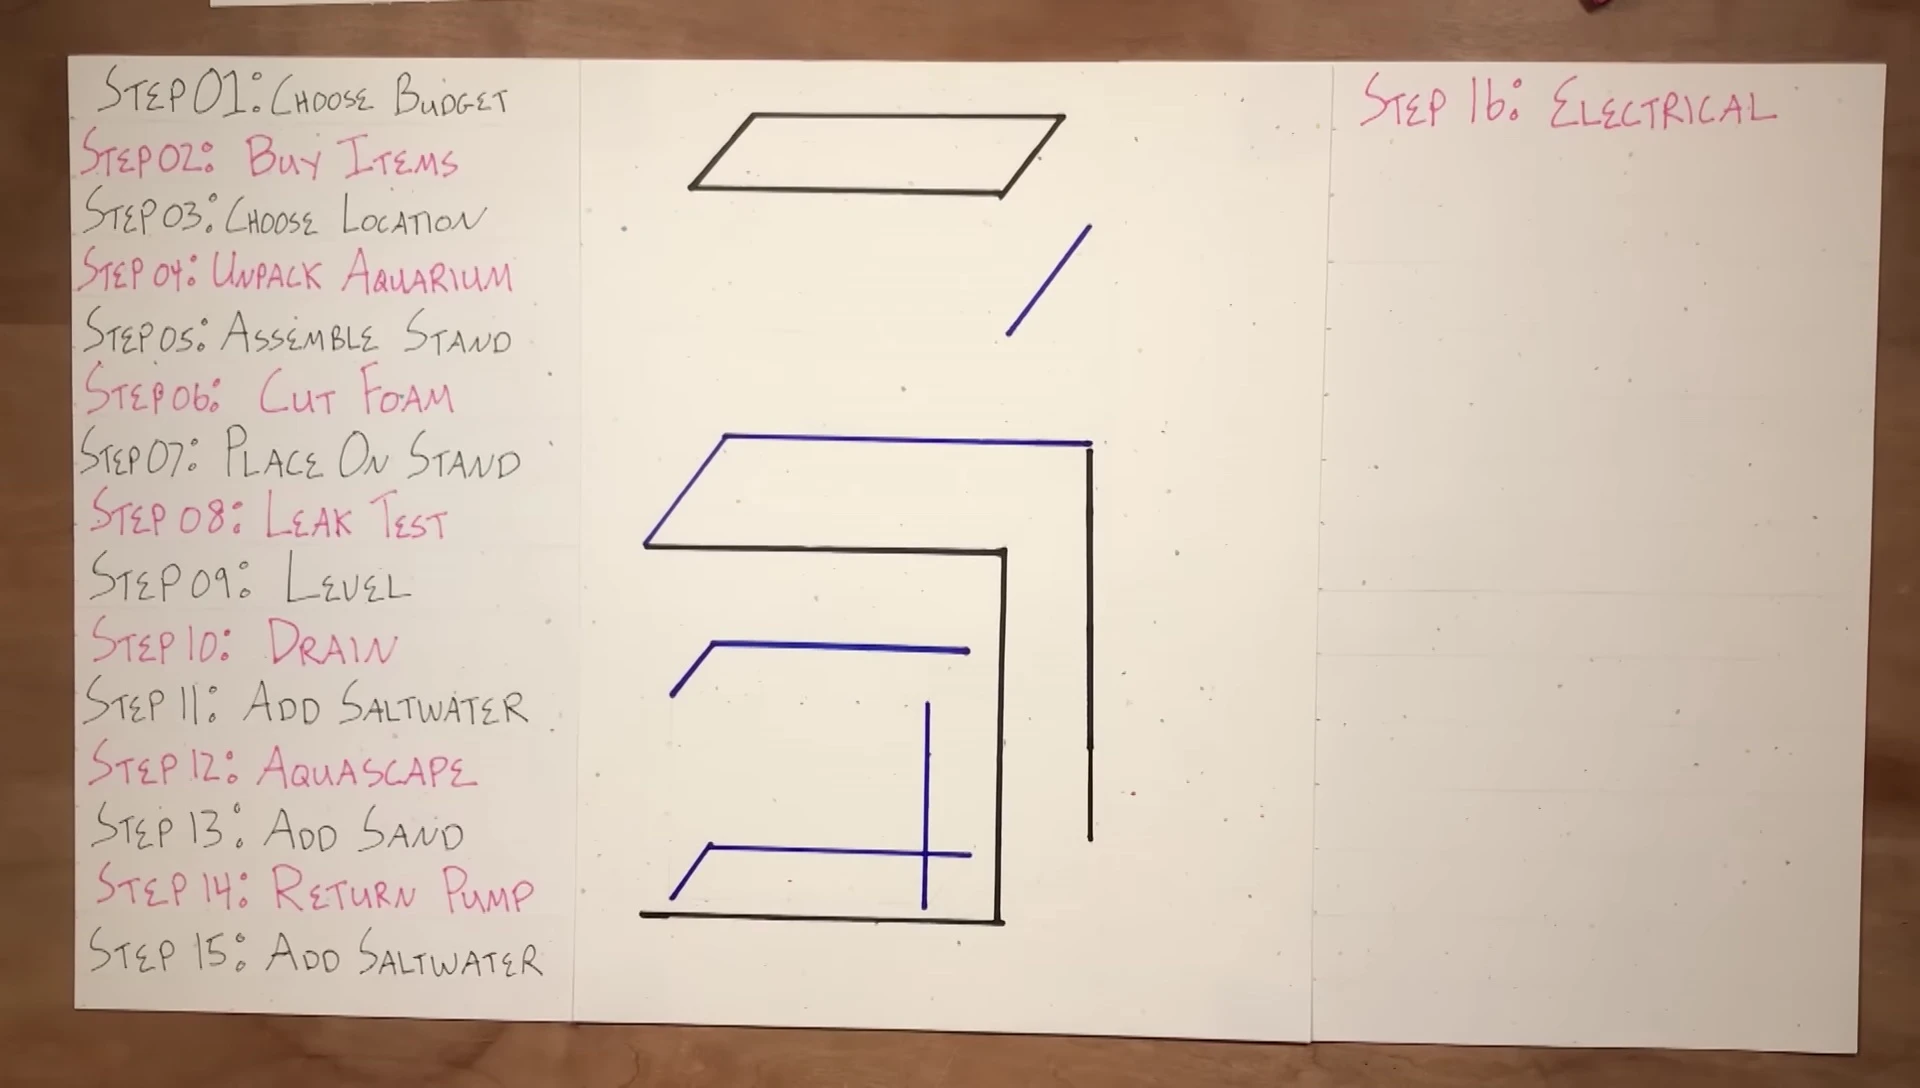 STEP 01: CHOOSE BUDGET
STEP 02: BUY ITEMS
STEP 03: CHOOSE LOCATION
STEP 04: UNPACK AQUARIUM
STEP 05: ASSEMBLE STAND
STEP 06: CUT FOAM
STEP 07: PLACE ON STAND
STEP 08: LEAK TEST
STEP 09: LEVEL
STEP 10: DRAIN
STEP 11: ADD SALTWATER
STEP 12: AQUASCAPE
STEP 13: ADD SAND
STEP 14: RETURN PUMP
STEP 15: ADD SALTWATER
STEP 16: ELECTRICAL